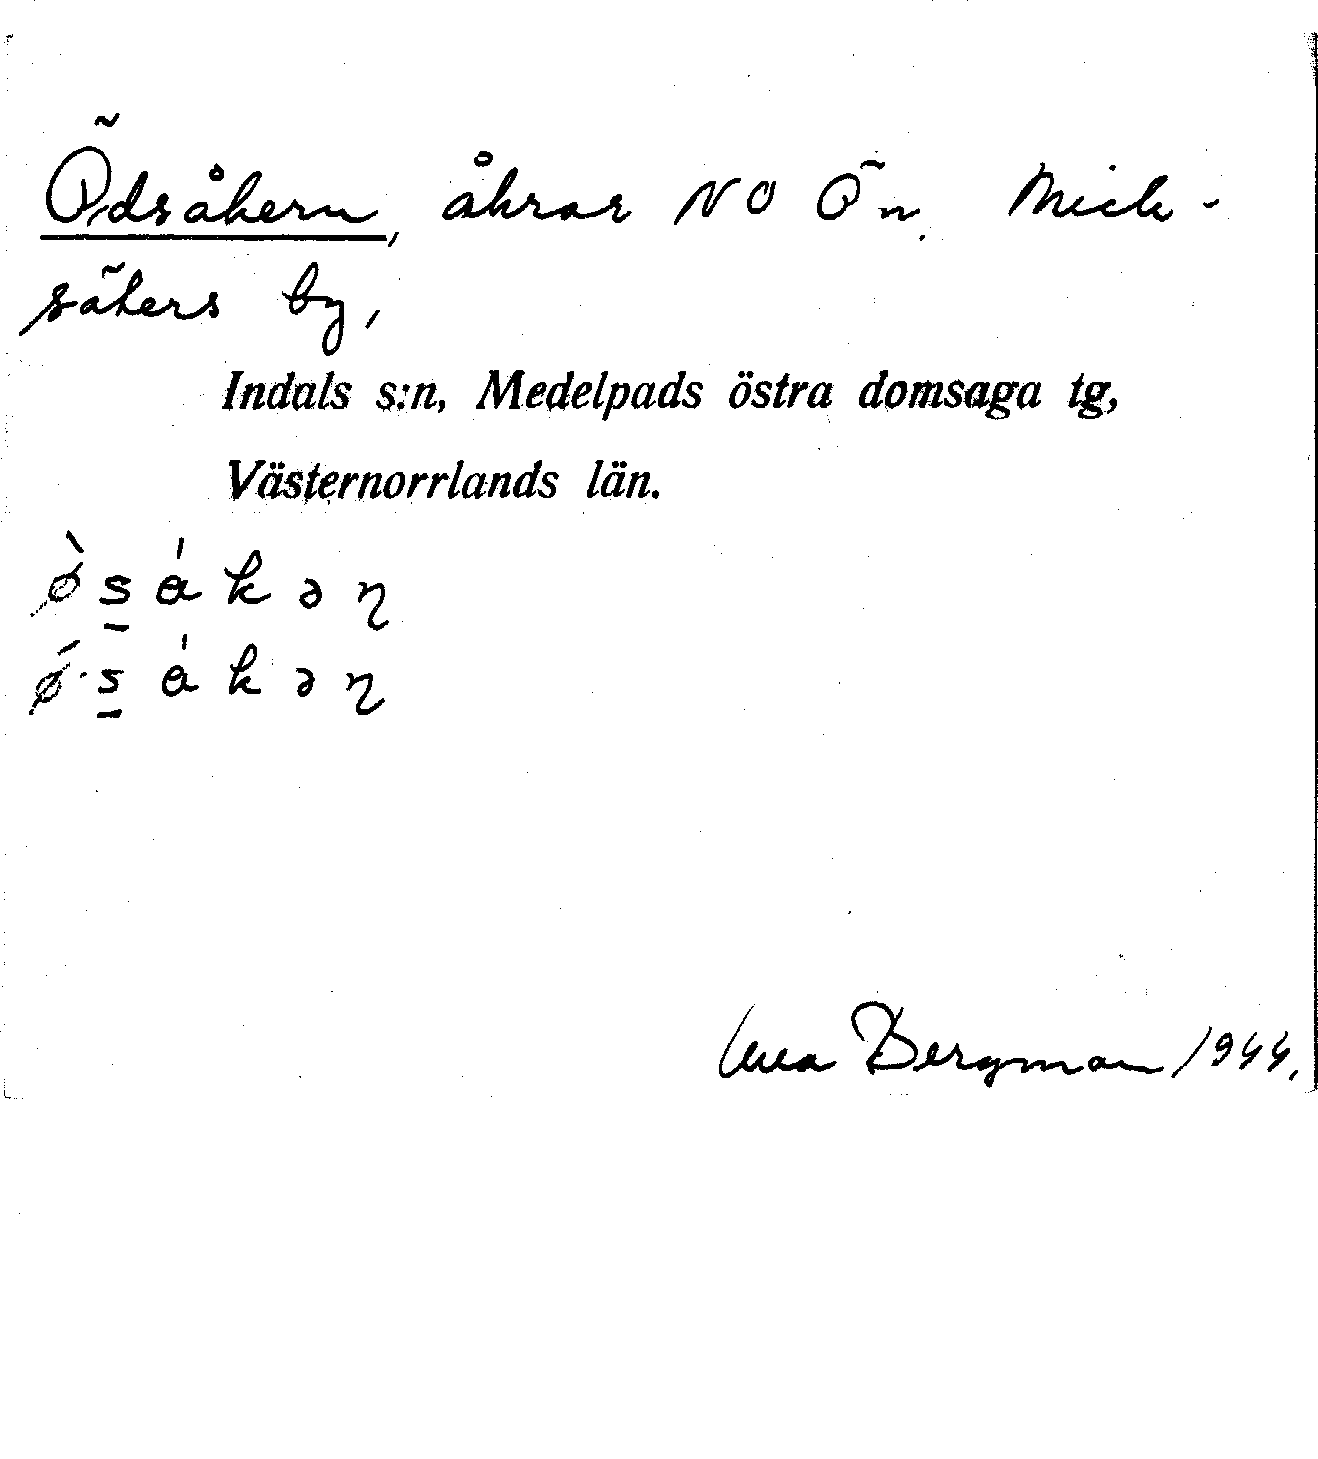 Ödsåkern, åkrar NO Ön. Mick-
säters by,
Indals s:n, Medelpads östra domsaga tg,
Västernorrlands län.
ø̀s̠ákəɳ
ǿ·s̠ákəɳ
Bergman 1944.